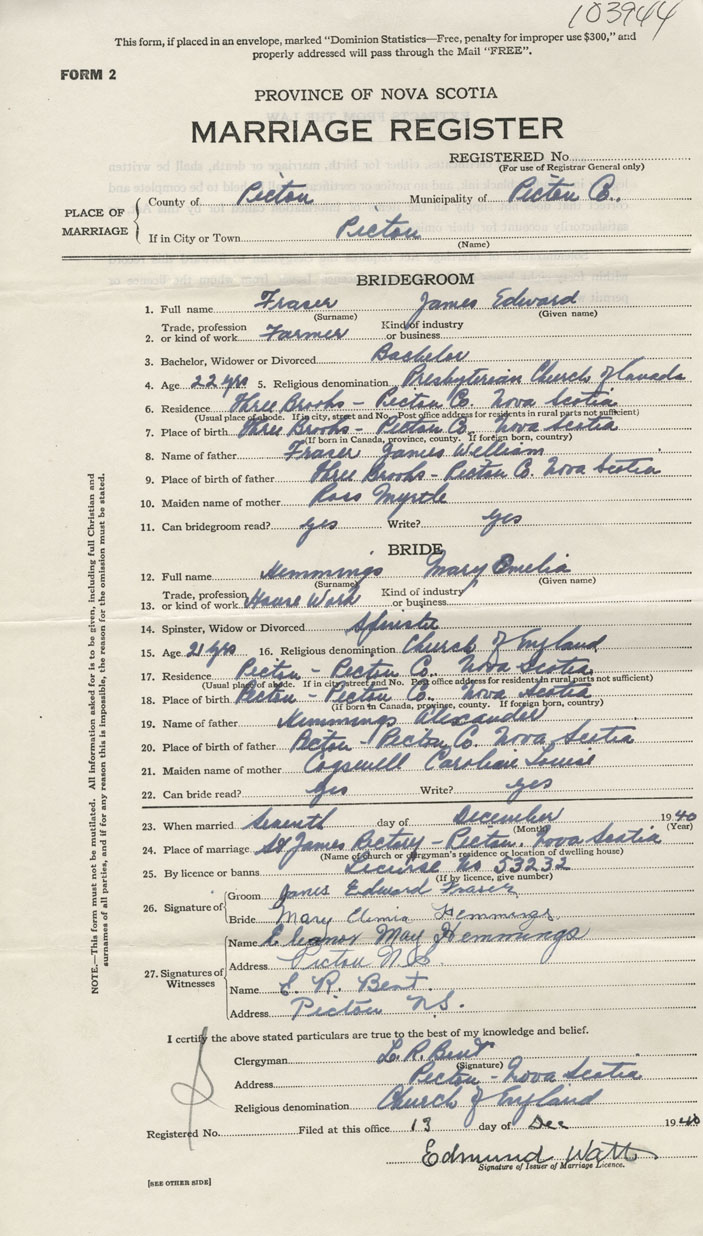 103944
This form, if placed in an envelope, marked "Dominion Statistics—Free, penalty for improper use $300," and
properly addressed will pass through the Mail "FREE".
FORM 2
PROVINCE OF NOVA SCOTIA
MARRIAGE REGISTER
REGISTERED No.
(For use of Registrar General only)
PLACE OF MARRIAGE
County of Pictou Municipality of Pictou C.
If in City or Town Pictou
(Name)
BRIDEGROOM
1. Full name Fraser James Edward
(Surname) (Given name)
2. Trade, profession or kind of work Farmer Kind of industry or business
3. Bachelor, Widower or Divorced Bachelor
4. Age 22 yrs 5. Religious denomination Presbyterian Church of Canada
6. Residence Three Brooks - Pictou C. Nova Scotia
(Usual place of abode. If in city, street and No. Post office address for residents in rural parts not sufficient)
7. Place of birth Three Brooks - Pictou C. Nova Scotia
(If born in Canada, province, county. If foreign born, country)
8. Name of father Fraser James William
9. Place of birth of father Three Brooks - Pictou C. Nova Scotia
10. Maiden name of mother Ross Myrtle
11. Can bridegroom read? yes Write? yes
BRIDE
12. Full name Hemmings Mary Emelia
(Surname) (Given name)
13. Trade, profession or kind of work House Work Kind of industry or business
14. Spinster, Widow or Divorced Spinster
15. Age 21 yrs 16. Religious denomination Church of England
17. Residence Pictou - Pictou C. Nova Scotia
(Usual place of abode. If in city, street and No. Post office address for residents in rural parts not sufficient)
18. Place of birth Pictou - Pictou C. Nova Scotia
(If born in Canada, province, county. If foreign born, country)
19. Name of father Hemmings Alexander
20. Place of birth of father Pictou - Pictou C. Nova Scotia
21. Maiden name of mother Cogswell Caroline Louise
22. Can bride read? yes Write? yes
23. When married Seventh day of December 1940
(Month) (Year)
24. Place of marriage St James Rectory - Pictou. Nova Scotia
(Name of church or clergyman's residence or location of dwelling house)
25. By licence or banns License No 53232
(If by licence, give number)
26. Signature of
Groom James Edward Fraser
Bride Mary Hemmings
27. Signatures of Witnesses
Name Eleanor May Hemmings
Address Pictou N.S.
Name L. R. Bent.
Address Pictou N.S.
I certify the above stated particulars are true to the best of my knowledge and belief.
Clergyman L. R. Bent
(Signature)
Address Pictou - Nova Scotia
Religious denomination Church of England
Registered No. Filed at this office 13 day of Dec 1940
Edmund Watts
Signature of Issuer of Marriage Licence.
[SEE OTHER SIDE]
NOTE.—This form must not be mutilated. All information asked for is to be given, including full Christian and
surnames of all parties, and if for any reason this is impossible, the reason for the omission must be stated.